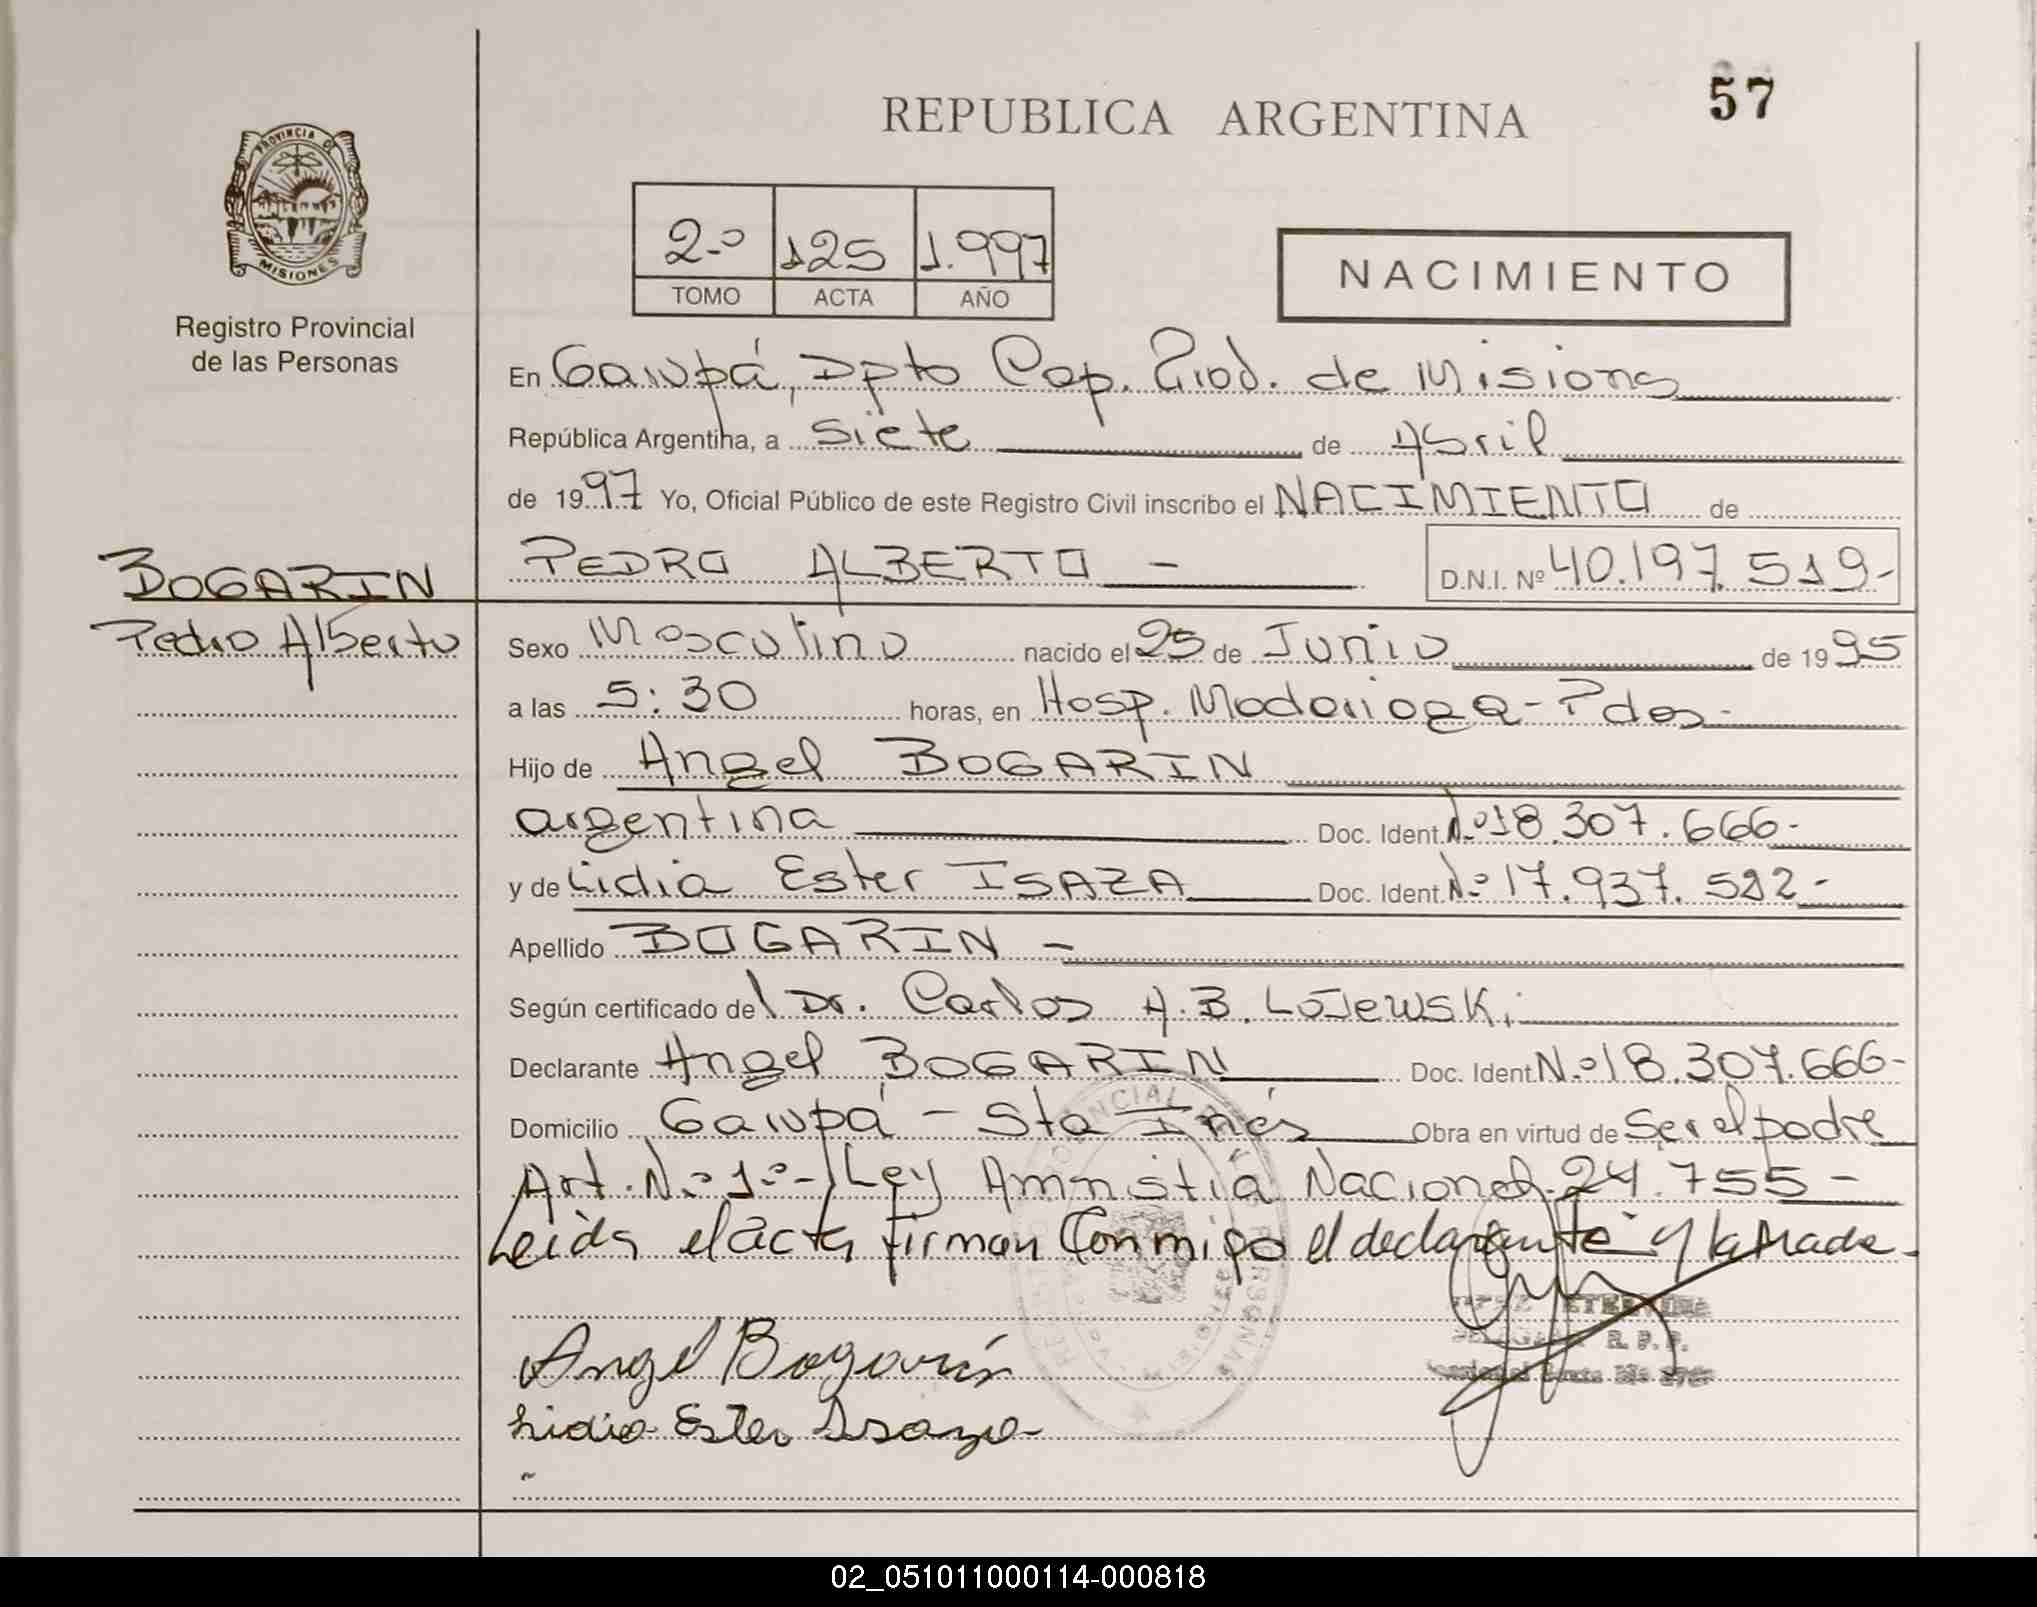 57
REPUBLICA ARGENTINA
PROVINCIA DE
MISIONES
Registro Provincial
de las Personas
2.º 125 1.997
TOMO ACTA AÑO
NACIMIENTO
En Garupá, Dpto Cap. Prov. de Misiones
República Argentina, a siete de Abril
de 1997 Yo, Oficial Público de este Registro Civil inscribo el NACIMIENTO de
BOGARIN
PEDRO ALBERTO - D.N.I. Nº 40.197.519-
Pedro Alberto
Sexo Masculino nacido el 25 de Junio de 1995
a las 5:30 horas, en Hosp. Madariaga - Pdas-
Hijo de Angel BOGARIN
argentina Doc. Ident. N.º 18.307.666-
y de Lidia Ester ISAZA Doc. Ident. N.º 17.937.592-
Apellido BOGARIN -
Según certificado del Dr. Carlos A.B. Lojewski
Declarante Angel BOGARIN Doc. Ident. N.º 18.307.666-
Domicilio Garupá - Sta Inés Obra en virtud de Ser el padre
Art. N.º 1º- Ley Amnistía Nacional 24.755-
Leida el acta firman Conmigo el declarante y la Madre-
Angel Bogarín
R. P. P.
Lidia Ester Isaza
02_051011000114-000818